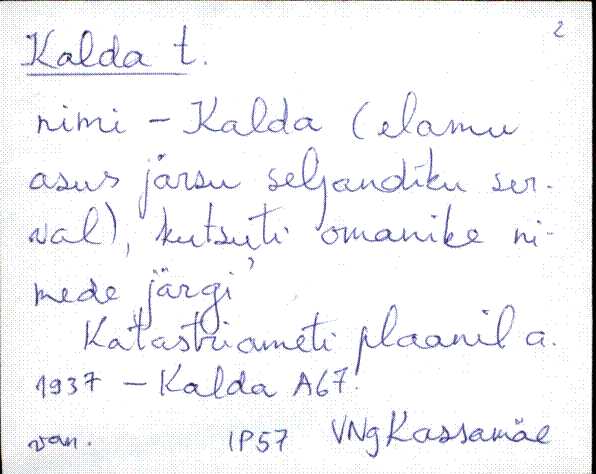 2
Kalda t.
nimi - Kalda (elamu
asus järsu seljandiku ser-
val), kutsuti omanike ni-
mede järgi
Katastriameti plaanil a.
1937 - Kalda A67.
van. IP57 VNg Kassamäe